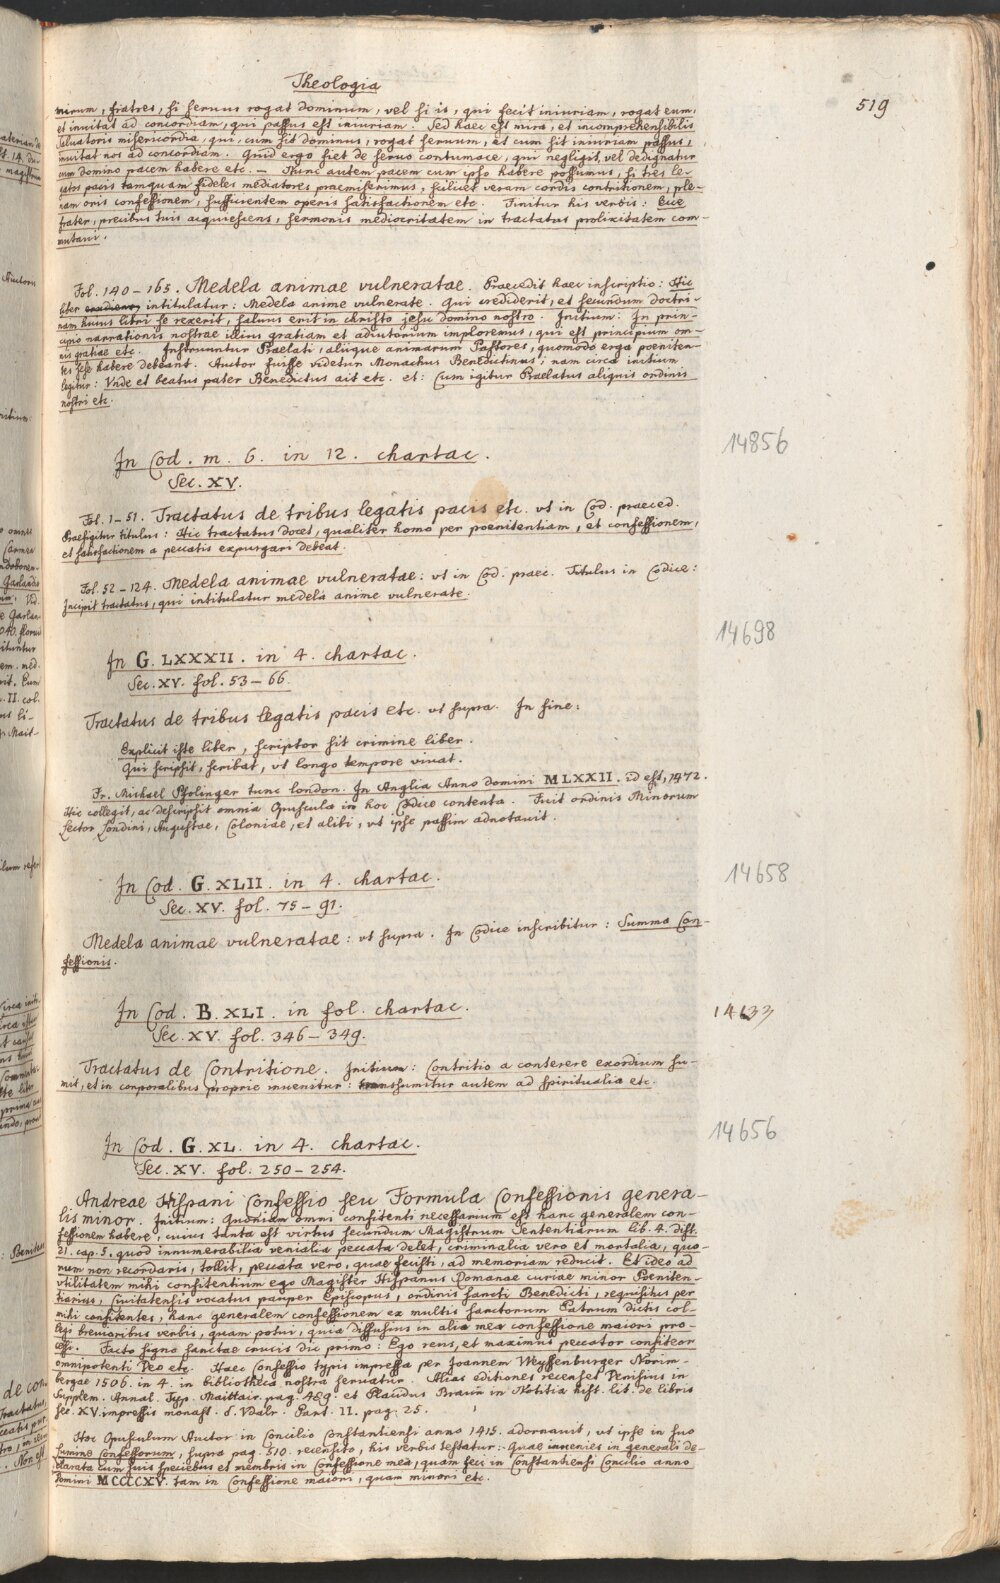 Theologia
519
mirum, fratres, si seruus rogat dominum, vel si is, qui fecit iniuriam, rogat eum,
et inuitat ad concordiam, qui passus est iniuriam. Sed haec est mira, et incomprehensibilis
Saluatoris misericordia, qui, cum sit dominus, rogat seruum, et cum sit iniuriam passus,
inuitat nos ad concordiam. Quid ergo fiet de seruo contumace, qui negligit, vel dedignatur
cum domino pacem habere etc. — Tunc autem pacem cum ipso habere possumus, si tres le-
gatos pacis tamquam fideles mediatores praemiserimus, scilicet veram cordis contritionem, ple-
nam oris confessionem, sufficientem operis satisfactionem etc. Finitur his verbis: Ecce
frater, precibus tuis acquiescens, sermonis mediocritatem in tractatus prolixitatem com-
mutaui.
Fol. 140–165. Medela animae vulneratae. Praecedit haec inscriptio: Hic
liber intitulatur: Medela anime vulnerate. Qui crediderit, et secundum doctri-
nam huius libri se rexerit, saluus erit in christo jesu domino nostro. Initium: In prin-
cipio narrationis nostrae illius gratiam et adiutorium imploremus, qui est principium om-
nis gratiae etc. Instruuntur Praelati, aliique animarum Pastores, quomodo erga poeniten-
tes sese habere debeant. Auctor fuisse videtur Monachus Benedictinus; nam circa initium
legitur: Vnde et beatus pater Benedictus ait etc. et: Cum igitur Praelatus aliquis ordinis
nostri etc.
14856
In Cod. m. 6. in 12. chartac.
Sec. XV.
Fol. 1–51. Tractatus de tribus legatis pacis etc. vt in Cod. praeced.
Praefigitur titulus: Hic tractatus docet, qualiter homo per poenitentiam, et confessionem,
et satisfactionem a peccatis expurgari debeat.
Fol. 52–124. Medela animae vulneratae: vt in Cod. praec. Titulus in Codice:
Incipit tractatus, qui intitulatur medela anime vulnerate.
14698
In G. LXXXII. in 4. chartac.
Sec. XV. fol. 53–66.
Tractatus de tribus legatis pacis etc. vt supra. In fine:
Explicit iste liber, scriptor sit crimine liber.
Qui scripsit, scribat, vt longo tempore viuat.
Fr. Michael Pfolinger tunc london. In Anglia Anno domini MLXXII. id est, 1472.
Hic collegit, ac descripsit omnia Opuscula in hoc Codice contenta. Fuit ordinis Minorum
Lector Londini, Augustae, Coloniae, et alibi, vt ipse passim adnotauit.
14658
In Cod. G. XLII. in 4. chartac.
Sec. XV. fol. 75–91.
Medela animae vulneratae: vt supra. In Codice inscribitur: Summa Con-
fessionis.
14633
In Cod. B. XLI. in fol. chartac.
Sec. XV. fol. 346–349.
Tractatus de Contritione. Initium: Contritio a conterere exordium su-
mit, et in corporalibus proprie inuenitur: transsumitur autem ad spiritualia etc.
14656
In Cod. G. XL. in 4. chartac.
Sec. XV. fol. 250–254.
Andreae Hispani Confessio seu Formula Confessionis genera-
lis minor. Initium: Quoniam omni confitenti necessarium est hanc generalem con-
fessionem habere, cuius tanta est virtus secundum Magistrum Sententiarum lib. 4. dist.
21. cap. 5. quod innumerabilia venialia peccata delet, criminalia vero et mortalia, quo-
rum non recordaris, tollit, peccata vero, quae fecisti, ad memoriam reducit. Et ideo ad
vtilitatem mihi confitentium ego Magister Hispanus Romanae curiae minor Poeniten-
tiarius, Ciuitatensis vocatus pauper Episcopus, ordinis sancti Benedicti, requisitus per
mihi confitentes, hanc generalem confessionem ex multis sanctorum Patrum dictis col-
legi breuioribus verbis, quam potui, quia diffusius in alia mea confessione maiori pro-
cessi. Facto signo sanctae crucis dic primo: Ego reus, et maximus peccator confiteor
omnipotenti Deo etc. Haec Confessio typis impressa per Joannem Weyssenburger Norim-
bergae 1506. in 4. in bibliotheca nostra seruatur. Alias editiones recenset Denisius in
Supplem. Annal. Typ. Maittair. pag. 489. et Placidus Braun in Notitia hist. lit. de libris
sec. XV. impressis monast. S. Vdalr. Part. II. pag. 25.
Hoc Opusculum Auctor in Concilio Constantiensi anno 1415. adornauit, vt ipse in suo
Lumine Confessorum, supra pag. 510. recensito, his verbis testatur: Quae inuenies in generali de-
clarata cum suis speciebus et membris in Confessione mea, quam feci in Constantiensi Concilio anno
Domini MCCCCXV. tam in Confessione maiori, quam minori etc.